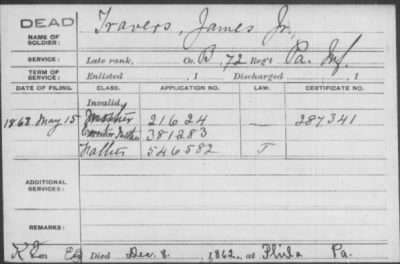 DEAD
NAME OF SOLDIER: Travers, James Jr.,
SERVICE: Late rank, Co. B, 72 Reg't Pa. Inf.
TERM OF SERVICE: Enlisted , 1 Discharged , 1
DATE OF FILING. CLASS. APPLICATION NO. LAW. CERTIFICATE NO.
Invalid,
1863 May 15 Mother 21624 — 287341
381283
Father 546582 J
ADDITIONAL SERVICES:
REMARKS:
Died Dec. 8, 1862, at Phila Pa.